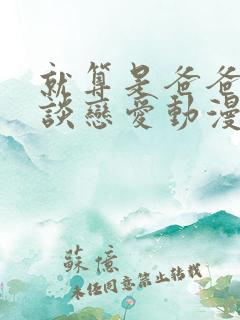 就算是爸爸
談戀愛動漫
蘇億
未任同意禁止转载